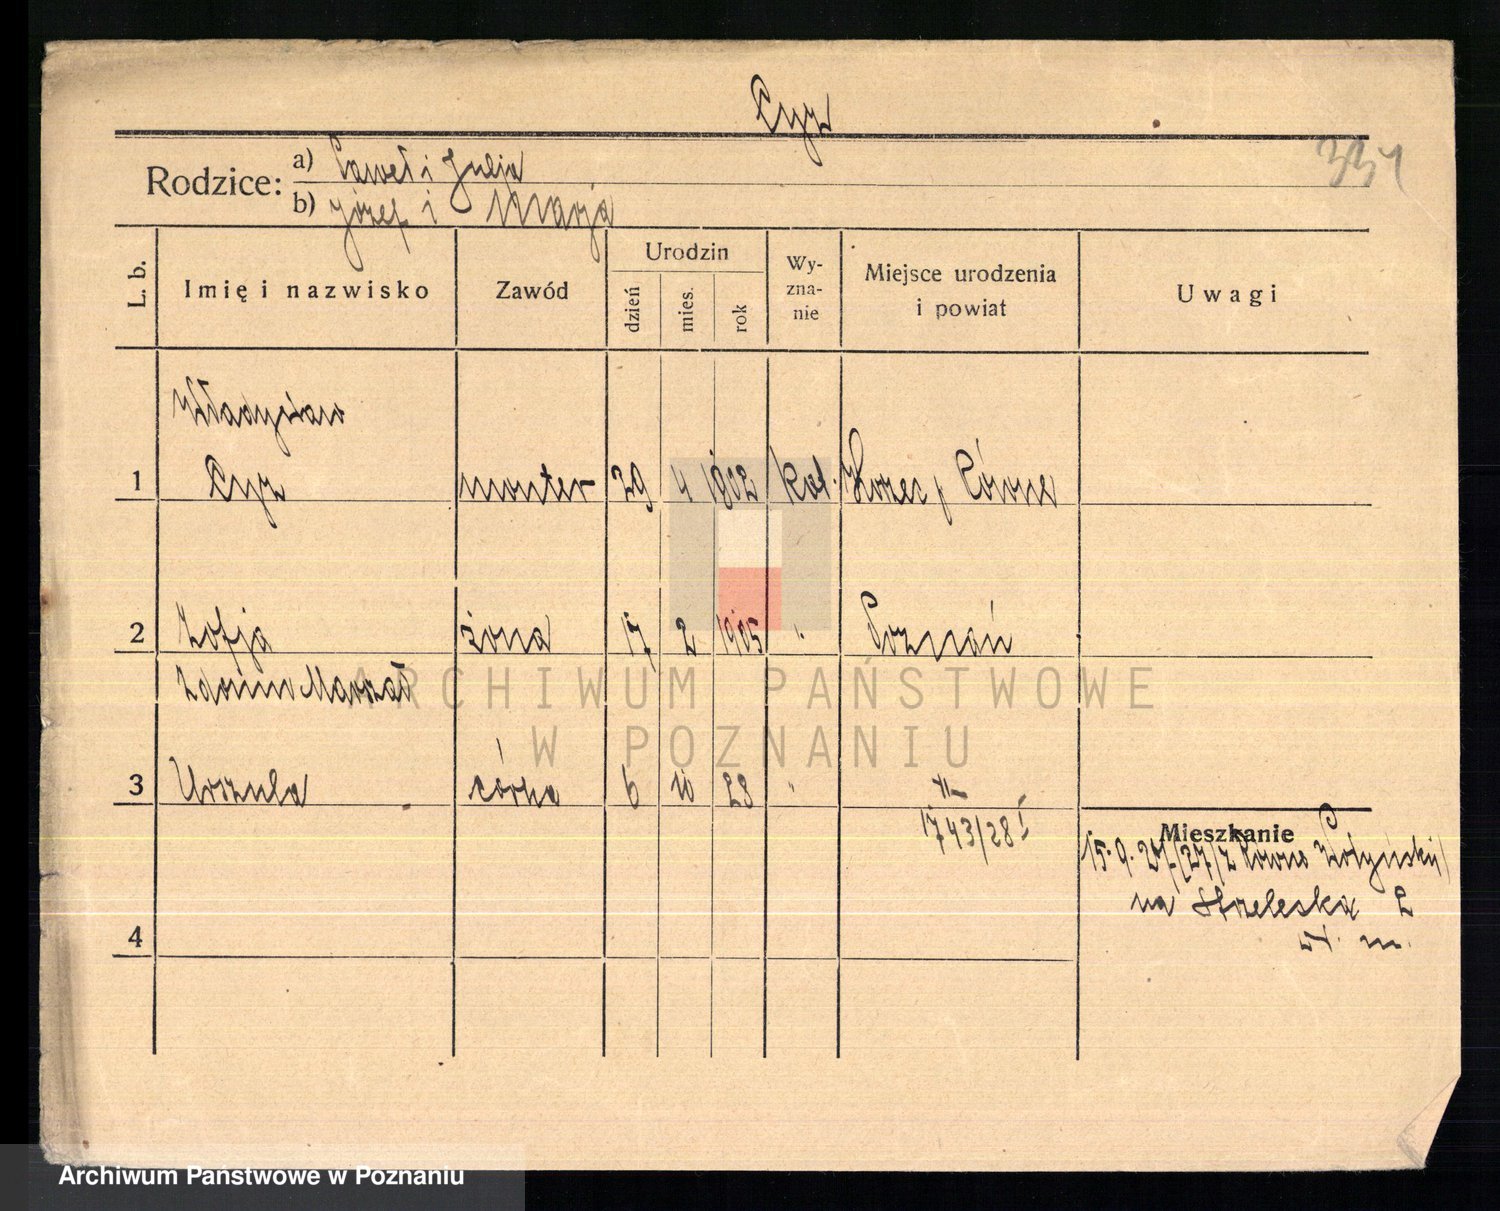 Cyz
331
Rodzice: a) Paweł i Julja
b) Józef i Marja
L. b. Imię i nazwisko Zawód Urodzin dzień mies. rok Wy-zna-nie Miejsce urodzenia i powiat Uwagi
Władysław
1 Cyz monter 29 4 1902 kat. Korzec p Równe
2 Zofja żona 17 2 1905 " Poznań
zdomu Marszał
3 Urszula córka 6 10 28 " "
1743/28 I
Mieszkanie
15.9.27/27/z Równo Wołyński/
na Strzelecka 2
4
ARCHIWUM PAŃSTWOWE
W POZNANIU
Archiwum Państwowe w Poznaniu